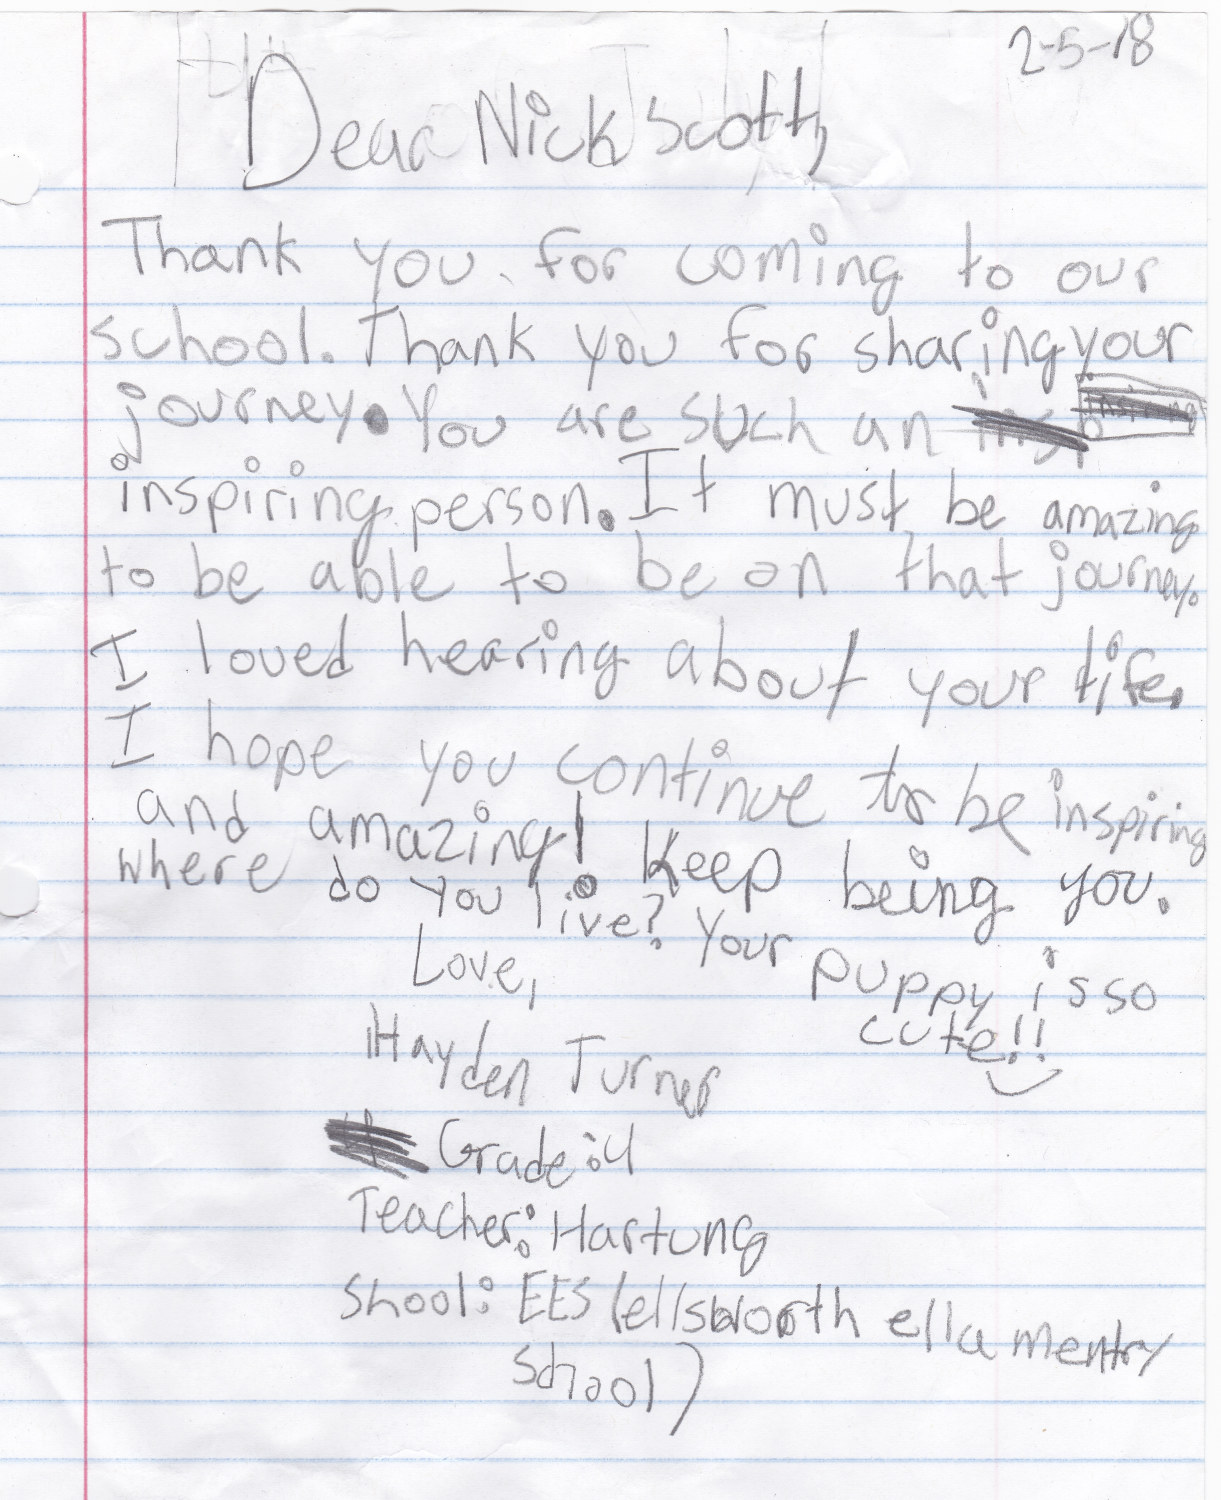 2-5-18
Dear Nick Scott,
Thank you for coming to our
school. Thank you for sharing your
journey. You are such an insp inspiring
inspiring person. It must be amazing
to be able to be on that journey.
I loved hearing about your life.
I hope you continue to be inspiring
and amazing! Keep being you.
where do you live? Your puppy is so
cute!!
Love,
Hayden Turner
Grade:4
Teacher: Hartung
Shool: EES (ellsworth ella mentry
school)